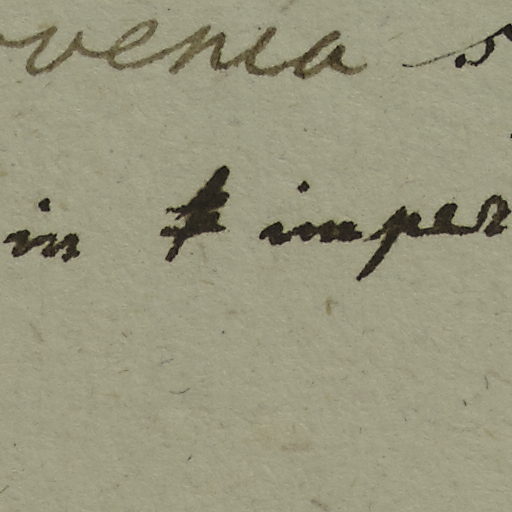 venia s
in imper